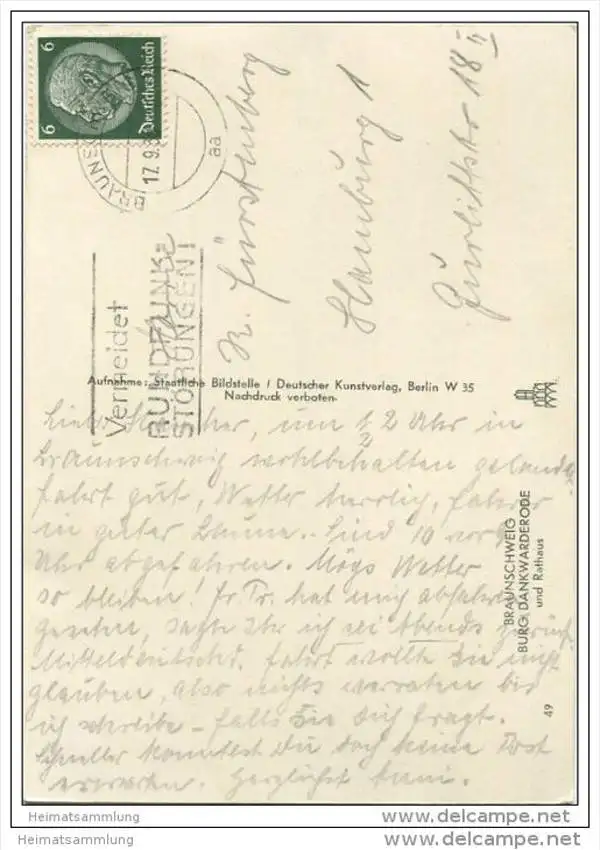 6 6
Deutsches Reich
BRAUNSCHWEIG
17.9.3
aa
Vermeidet
RUNDFUNK=
STÖRUNGEN!
K. Fürstenberg
Hamburg 1
Gurlittstr 18 II
Aufnahme: Staatliche Bildstelle / Deutscher Kunstverlag, Berlin W 35
Nachdruck verboten.
Lieber um 12 Uhr in
Braunschweig wohlbehalten gelandet
fahrt gut, Wetter herrlich, Fahrer
in guter Laune. Sind 10 vor 9
Uhr abgefahren. Mögs Wetter
so bleiben! Fr. Tr. hat mich abfahren
gesehen, sagte ihr ich sei Abends zurück
Mitteldeutschl. fahrt wollte Sie nicht
glauben, also nichts verraten bis
ich schreibe – falls Sie Dich fragt.
Schneller konntest Du doch keine Post
erwarten. Herzlichst
BRAUNSCHWEIG
BURG DANKWARDERODE
und Rathaus
49
Heimatsammlung
Heimatsammlung
www.delcampe.net
www.delcampe.net